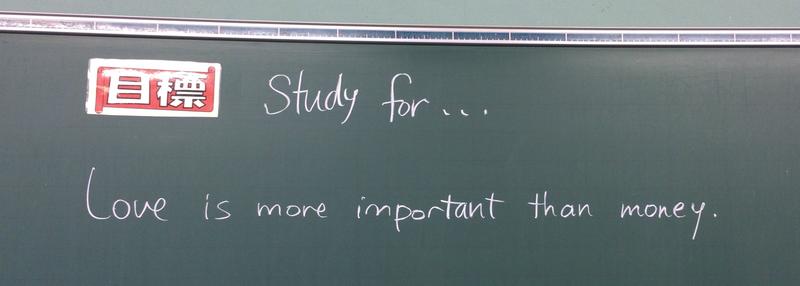 目標 Study for...
Love is more important than money.